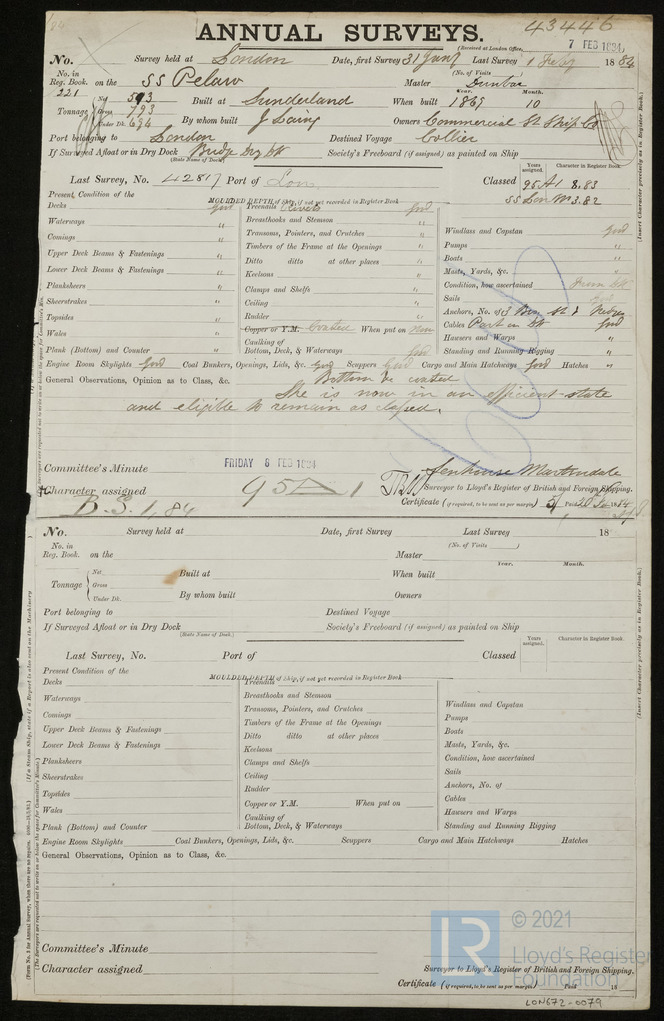 ANNUAL SURVEYS. 43446
(Received at London Office, 7 FEB 1884
No. Survey held at London Date, first Survey 31 Jany Last Survey 1 Feby 1884
No. in Reg. Book. on the SS Pelaw (No. of Visits ) Master Dunbar
221
Tonnage Net 593 Gross 793 Under Dk. 694 Built at Sunderland When built Year. 1869 Month. 10
By whom built J Laing Owners Commercial St Ship Co
Port belonging to London Destined Voyage Collier
If Surveyed Afloat or in Dry Dock Bridge Dry Dk Society's Freeboard (if assigned) as painted on Ship
(State Name of Dock.)
Years assigned. Character in Register Book.
Last Survey, No. 42817 Port of Lon Classed 95 A1 8.83
SS Lon 3.82
Present Condition of the MOULDED DEPTH of Ship, if not yet recorded in Register Book
Decks good
Waterways "
Comings "
Upper Deck Beams & Fastenings "
Lower Deck Beams & Fastenings "
Planksheers "
Sheerstrakes "
Topsides "
Wales "
Plank (Bottom) and Counter "
Treenails Rivets good
Breasthooks and Stemson "
Transoms, Pointers, and Crutches "
Timbers of the Frame at the Openings "
Ditto ditto at other places "
Keelsons "
Clamps and Shelfs "
Ceiling "
Rudder "
Copper or Y.M. Coated When put on Now
Caulking of Bottom, Deck, & Waterways good
Windlass and Capstan good
Pumps "
Boats "
Masts, Yards, &c. "
Condition, how ascertained From Dk
Sails good
Anchors, No. of 3 Bow St &
Cables Part on Dk good
Hawsers and Warps "
Standing and Running Rigging "
Engine Room Skylights good Coal Bunkers, Openings, Lids, &c. good Scuppers good Cargo and Main Hatchways good Hatches "
General Observations, Opinion as to Class, &c. Bottom &c coated
She is now in an efficient state
and eligible to remain as classed.
Committee's Minute FRIDAY 8 FEB 1884 Senhouse Martindale
Character assigned 95 A 1 Surveyor to Lloyd's Register of British and Foreign Shipping.
B.S. 1,84 Certificate (if required, to be sent as per margin) 5/ Paid 1884
(Insert Character precisely as in Register Book.)
No. Survey held at Date, first Survey Last Survey 18
No. in Reg. Book. on the (No. of Visits ) Master
Tonnage Net Gross Under Dk. Built at When built Year. Month.
By whom built Owners
Port belonging to Destined Voyage
If Surveyed Afloat or in Dry Dock Society's Freeboard (if assigned) as painted on Ship
(State Name of Dock.)
Years assigned. Character in Register Book.
Last Survey, No. Port of Classed
Present Condition of the MOULDED DEPTH of Ship, if not yet recorded in Register Book
Decks
Waterways
Comings
Upper Deck Beams & Fastenings
Lower Deck Beams & Fastenings
Planksheers
Sheerstrakes
Topsides
Wales
Plank (Bottom) and Counter
Treenails
Breasthooks and Stemson
Transoms, Pointers, and Crutches
Timbers of the Frame at the Openings
Ditto ditto at other places
Keelsons
Clamps and Shelfs
Ceiling
Rudder
Copper or Y.M. When put on
Caulking of Bottom, Deck, & Waterways
Windlass and Capstan
Pumps
Boats
Masts, Yards, &c.
Condition, how ascertained
Sails
Anchors, No. of
Cables
Hawsers and Warps
Standing and Running Rigging
Engine Room Skylights Coal Bunkers, Openings, Lids, &c. Scuppers Cargo and Main Hatchways Hatches
General Observations, Opinion as to Class, &c.
Committee's Minute
Character assigned Surveyor to Lloyd's Register of British and Foreign Shipping.
Certificate (if required, to be sent as per margin) Paid 18
(Insert Character precisely as in Register Book.)
LR © 2021 Lloyd's Register Foundation
LON672-0079